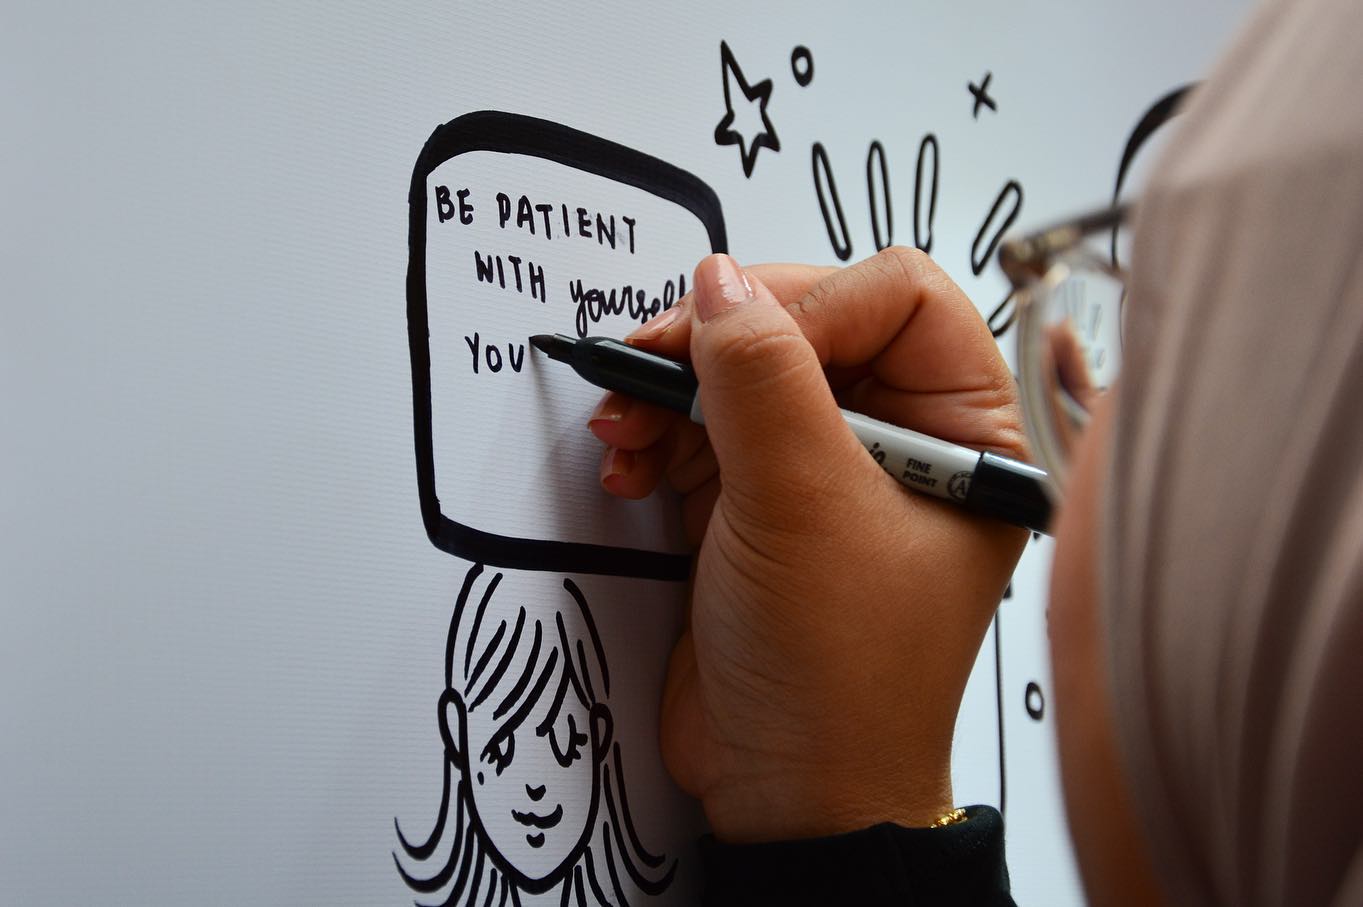 BE PATIENT
WITH yourself
YOU
FINE
POINT